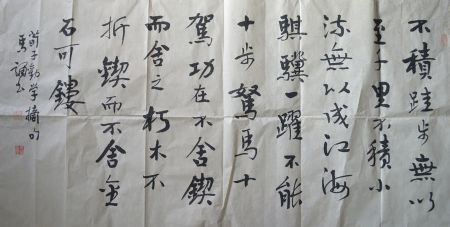 不積跬步無以
至千里不積小
流無以成江海
騏驥一躍不能
十步駑馬十
駕功在不舍鍥
而舍之朽木不
折鍥而不舍金
石可鏤
荀子勸学摘句